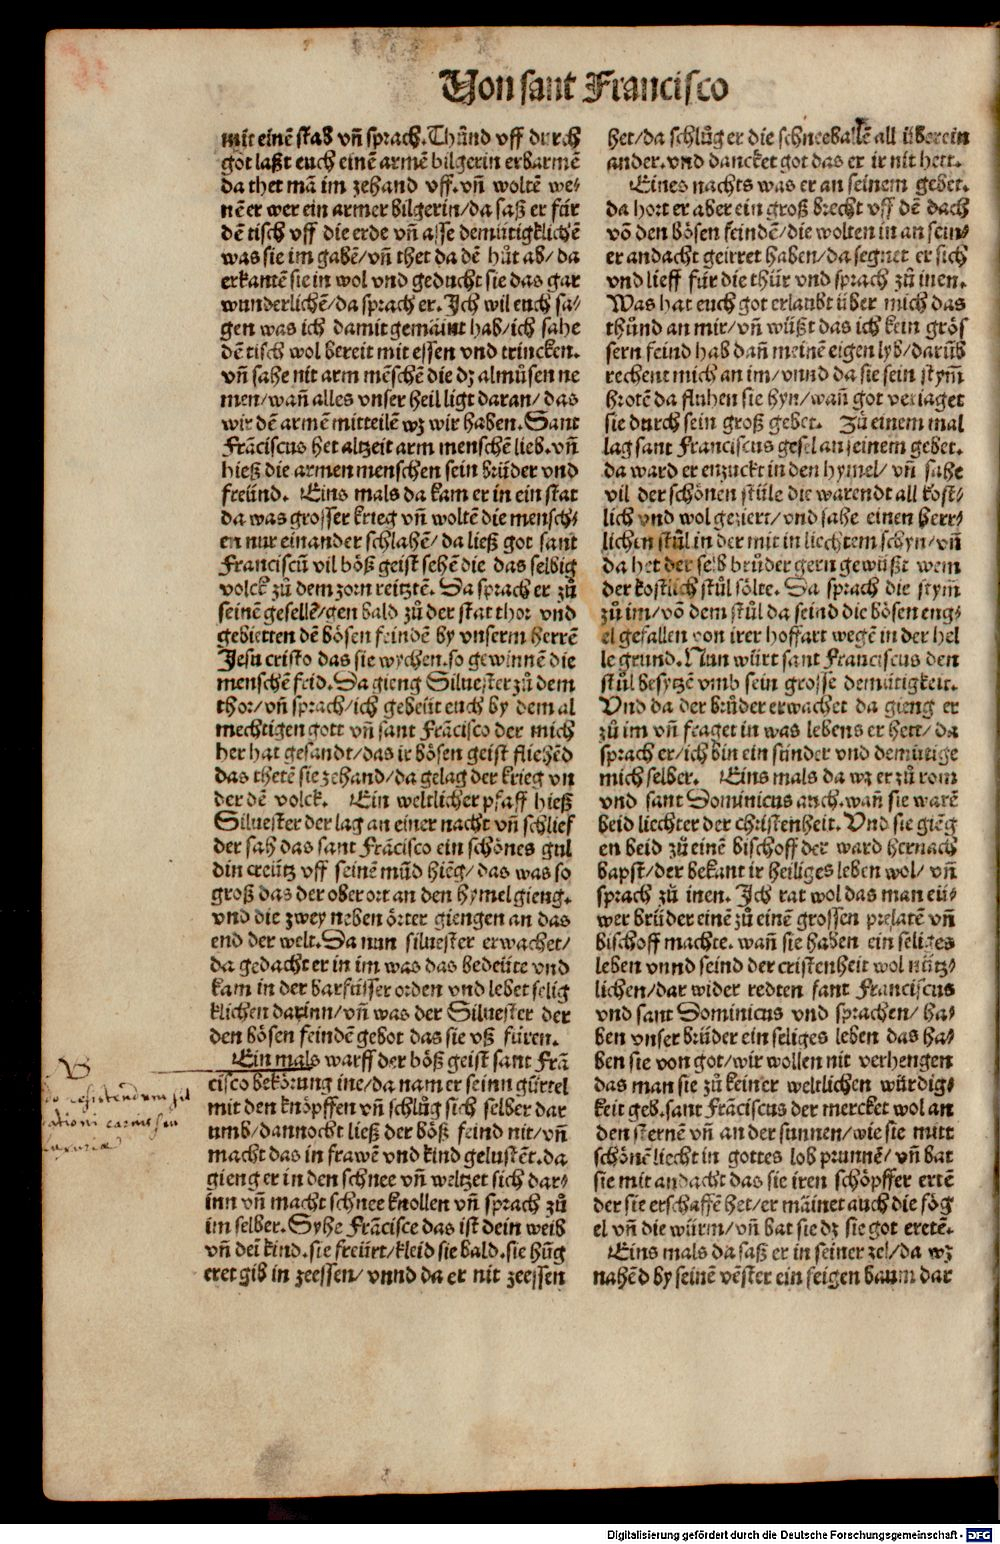 Von sant Francisco
mit einē stab vn̄ sprach. Thünd vff durch
got laßt euch einē armē bilgerin erbarmē
da thet mā im zehand vff. vn̄ woltē we⸗
nē er wer ein armer bilgerin/da saß er für
dē tisch vff die erde vn̄ asse demütigklichē
was sie im gabē/vn̄ thet da dē hůt ab/da
erkantē sie in wol vnd geducht sie das gar
wunderlichē/da sprach er. Ich wil euch sa⸗
gen was ich damit gemaint hab/ich sahe
dē tisch wol bereit mit essen vnd trincken.
vn̄ sahe nit arm mēschē die dz almůsen ne
men/wan̄ alles vnser heil ligt daran/das
wir dē armē mitteilē wz wir haben. Sant
Frāciscus het altzeit arm menschē lieb. vn̄
hieß die armen menschen sein brüder vnd
freünd. Eins mals da kam er in ein stat
da was grosser krieg vn̄ woltē die mensch⸗
en nur einander schlahē/da ließ got sant
Franciscū vil böß geist sehē die das selbig
volck zů dem zorn reitztē. Da sprach er zů
seinē gesellē/gen bald zů der stat thor vnd
gebietten dē bösen feindē by vnserm herrē
Jesu cristo das sie wychen. so gewinnē die
menschē feid. Da gieng Siluester zů dem
thor/vn̄ sprach/ich gebeüt euch by dem al
mechtigen gott vn̄ sant Frācisco der mich
her hat gesandt/das ir bösen geist fliehēd
das thetē sie zehand/da gelag der krieg vn
der dē volck. Ein weltlicher pfaff hieß
Siluester der lag an einer nacht vn̄ schlief
der sah das sant Frācisco ein schönes gul
din creütz vff seinē mūd hiēg/das was so
groß das der ober ort an den hymel gieng.
vnd die zwey neben örter giengen an das
end der welt. Da nun siluester erwachet/
da gedacht er in im was das bedeüte vnd
kam in der barfüsser orden vnd lebet selig
klichen darinn/vn̄ was der Siluester der
den bösen feindē gebot das sie vß füren.
Ein mals warff der böß geist sant Frā
cisco bekörung ine/da nam er seinn gürtel
mit den knöpffen vn̄ schlůg sich selber dar
umb/dannocht ließ der böß feind nit/vn̄
macht das in frawē vnd kind gelustēt. da
gieng er in den schnee vn̄ weltzet sich dar⸗
inn vn̄ macht schnee knollen vn̄ sprach zů
im selber. Syhe Frācisce das ist dein weib
vn̄ dei kind. sie freürt/kleid sie bald. sie hūg
eret gib in zeessen/vnnd da er nit zeessen
het/da schlůg er die schneeballē all überein
ander. vnd dancket got das er ir nit hett.
Eines nachts was er an seinem gebet.
da hort er aber ein groß brecht vff dē dach
vō den bösen feindē/die wolten in an sein⸗
er andacht geirret haben/da segnet er sich
vnd lieff für die thür vnd sprach zů inen.
Was hat euch got erlaubt über mich das
thůnd an mir/vn̄ wüßt das ich kein grös
sern feind hab dan̄ meinē eigen lyb/darūb
rechent mich an im/vnnd da sie sein stym̄
hrotē da fluhen sie hyn/wan̄ got veriaget
sie durch sein groß gebet. Zů einem mal
lag sant Franciscus gesel an seinem gebet.
da ward er enzuckt in den hymel/vn̄ sahe
vil der schönen stüle die warendt all kost⸗
lich vnd wol geziert/vnd sahe einen herr⸗
lichen stůl in der mit in liechtem schyn/vn̄
da het der selb brůder gern gewüßt wem
der kostlich stůl sölte. Da sprach die stym̄
zů im/vō dem stůl da seind die bösen eng⸗
el gefallen von irer hoffart wegē in der hel
le grund. Nun würt sant Franciscus den
stůl besytzē vmb sein grosse demütigkeit.
Vnd da der brůder erwachet da gieng er
zů im vn̄ fraget in was lebens er hett/da
sprach er/ich bin ein sünder vnd demütige
mich selber. Eins mals da wz er zů rom
vnd sant Dominicus auch. wan̄ sie warē
beid liechter der christenheit. Vnd sie giēg
en beid zů einē bischoff der ward hernach
bapst/der bekant ir heiliges leben wol/vn̄
sprach zů inen. Ich rat wol das man eü⸗
wer brüder einē zů einē grossen prelatē vn̄
bischoff machte. wan̄ sie haben ein seliges
leben vnnd seind der cristenheit wol nütz⸗
lichen/dar wider redten sant Franciscus
vnd sant Dominicus vnd sprachen/ha⸗
ben vnser brüder ein seliges leben das ha⸗
ben sie von got/wir wollen nit verhengen
das man sie zů keiner weltlichen würdig⸗
keit geb. sant Frāciscus der mercket wol an
den sternē vn̄ an der sunnen/wie sie mitt
schönē liecht in gottes lob prunnē/vn̄ bat
sie mit andacht das sie iren schöpffer ertē
der sie erschaffē het/er mäinet auch die fög
el vn̄ die würm/vn̄ bat sie dz sie got eretē.
Eins mals da saß er in seiner zel/da wz
nahēd by seinē vēster ein feigen baum dar
Digitalisierung gefördert durch die Deutsche Forschungsgemeinschaft - DFG